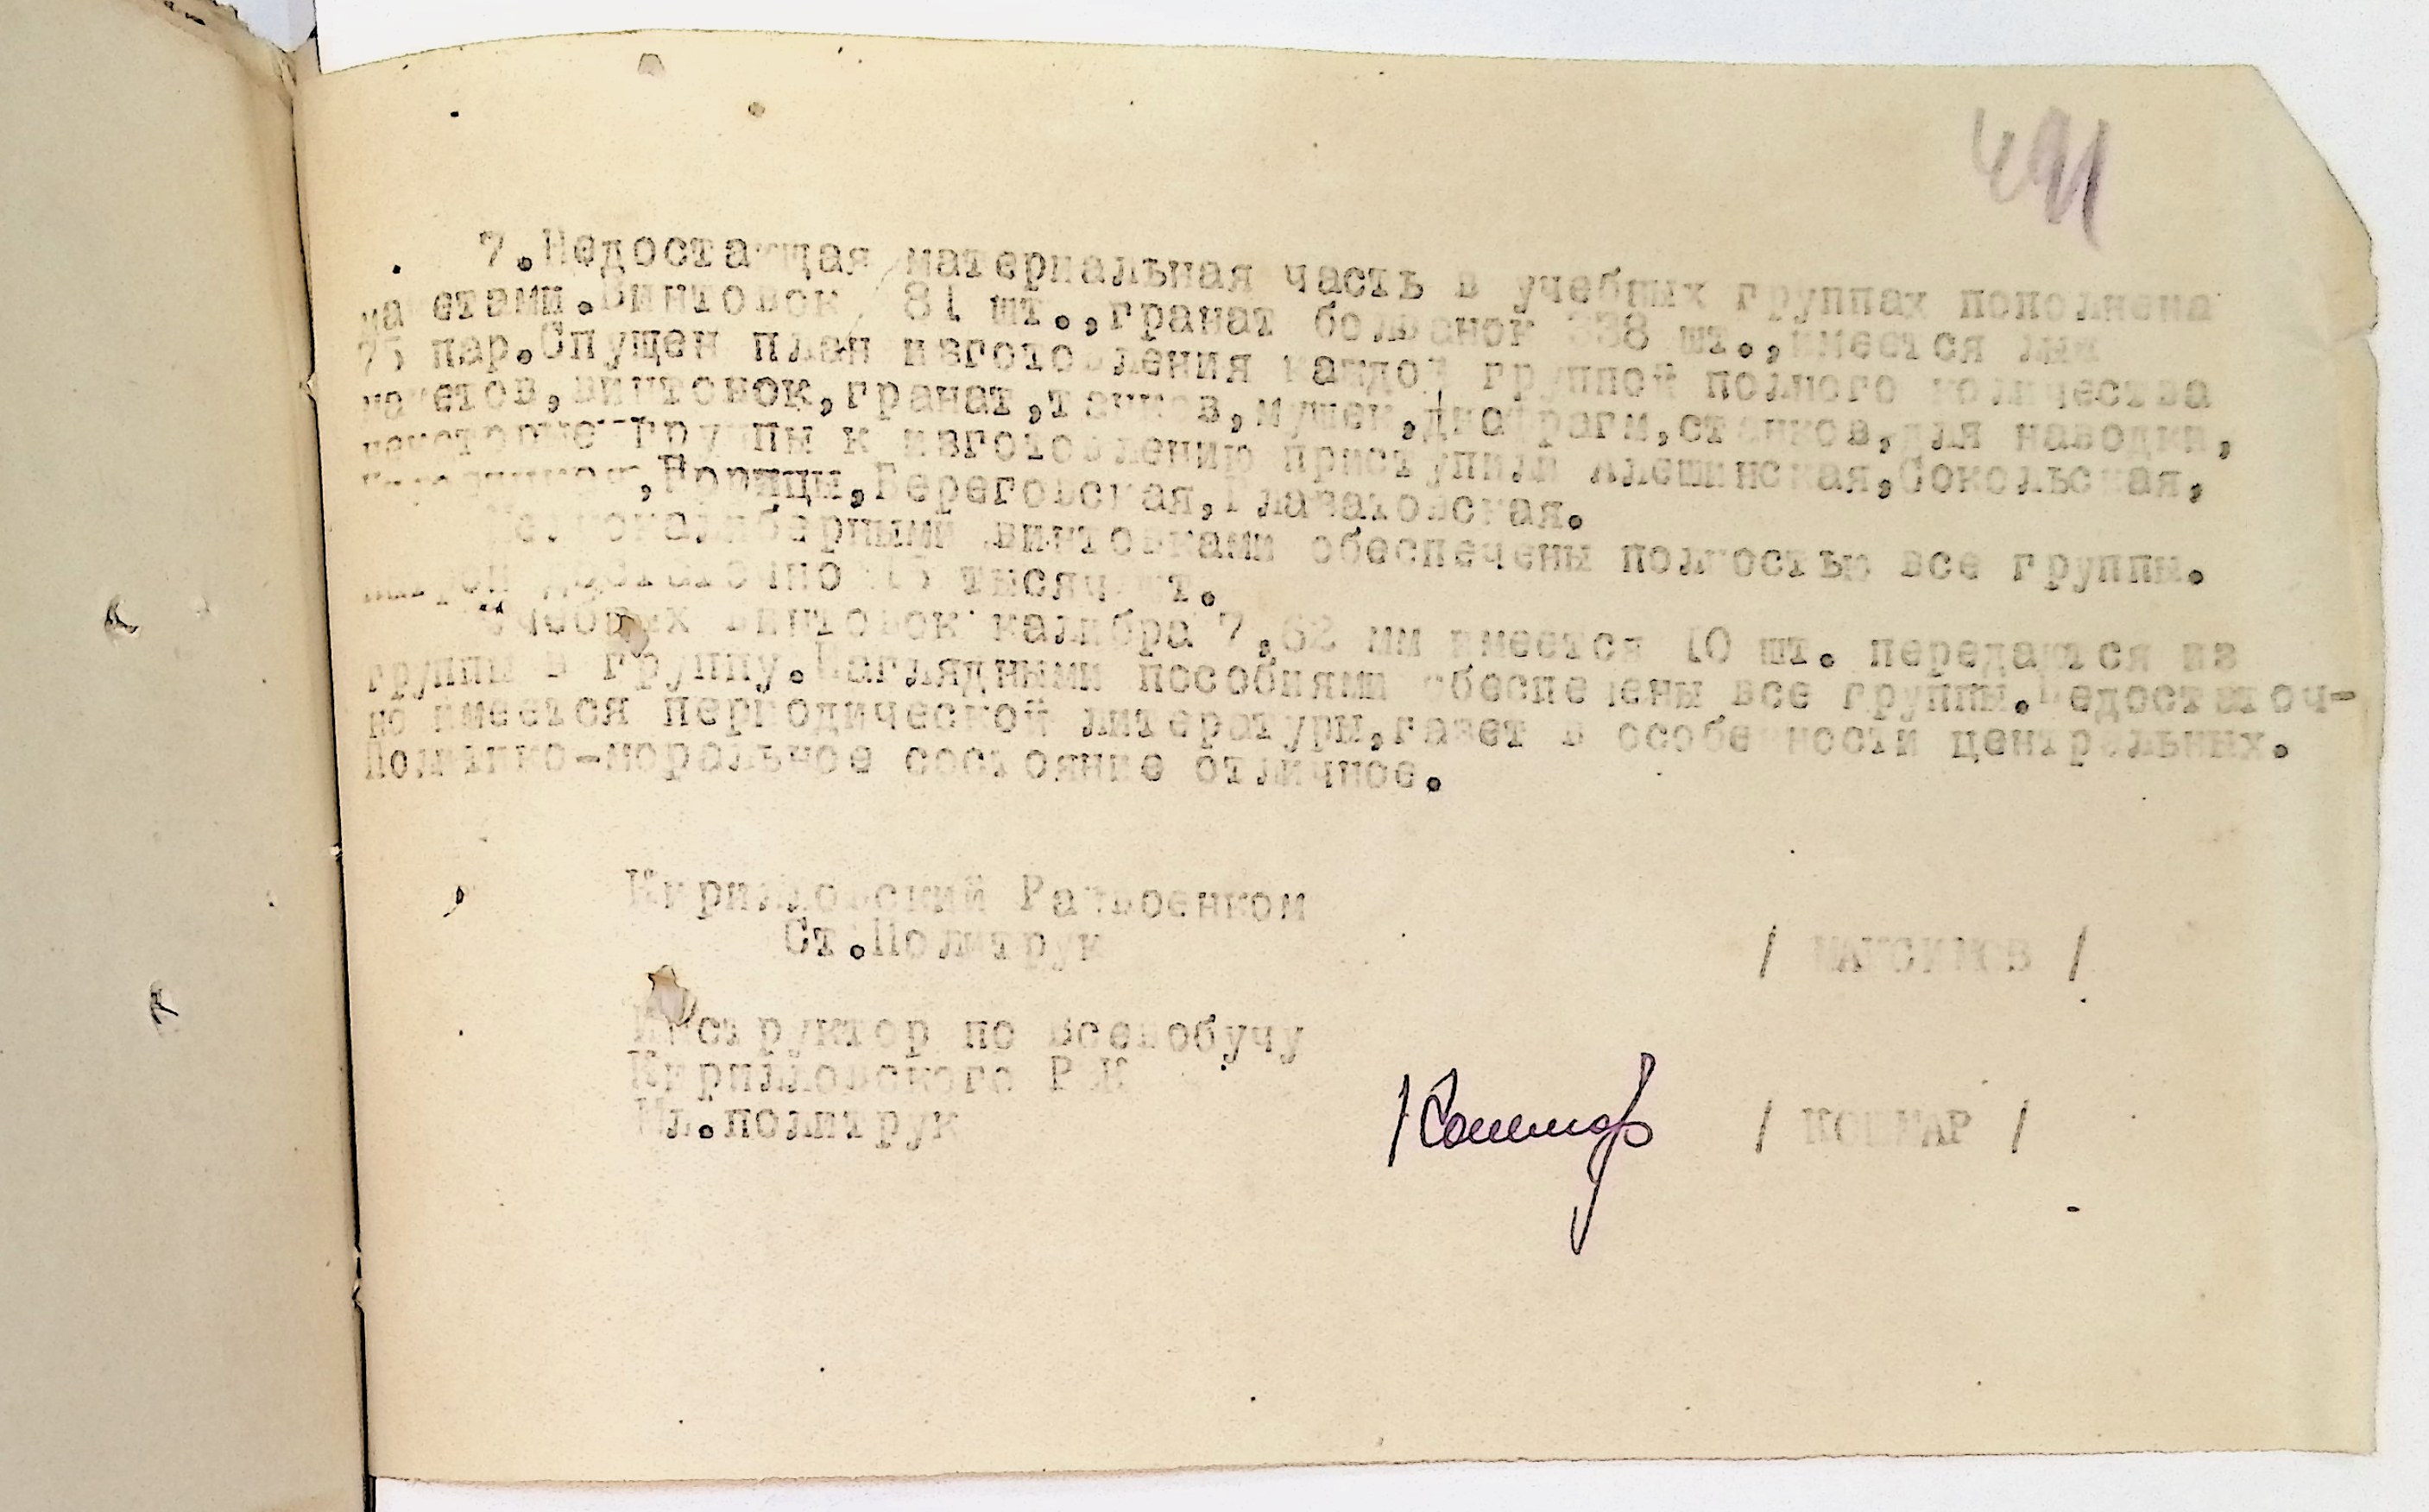 491
7.Недостающая материальная часть в учебных группах пополнена
макетами.Винтовок 81 шт.,гранат болванок 338 шт.,имеется лыж
75 пар.Спущен план изготовления каждой группой полного количества
макетов,винтовок,гранат,танков,мушек,диафрагм,станков,для наводки,
некоторые группы к изготовлению приступили Алешинская,Сокольская,
Береговская,Главатовская.
Мелкокалиберными винтовками обеспечены полностью все группы.
патрон достаточно тысяч шт.
Учебных винтовок калибра 7,62 мм имеется 10 шт. передаются из
группы в группу.Наглядными пособиями обеспечены все группы.Недостаточ-
но имеется периодической литературы,газет в особенности центральных.
Политико-моральное состояние отличное.
Кирилловский Райвоенком
Ст.Политрук / МАКСИМОВ /
Инструктор по всевобучу
Кирилловского РВК
Мл.политрук Кошмар / КОШМАР /